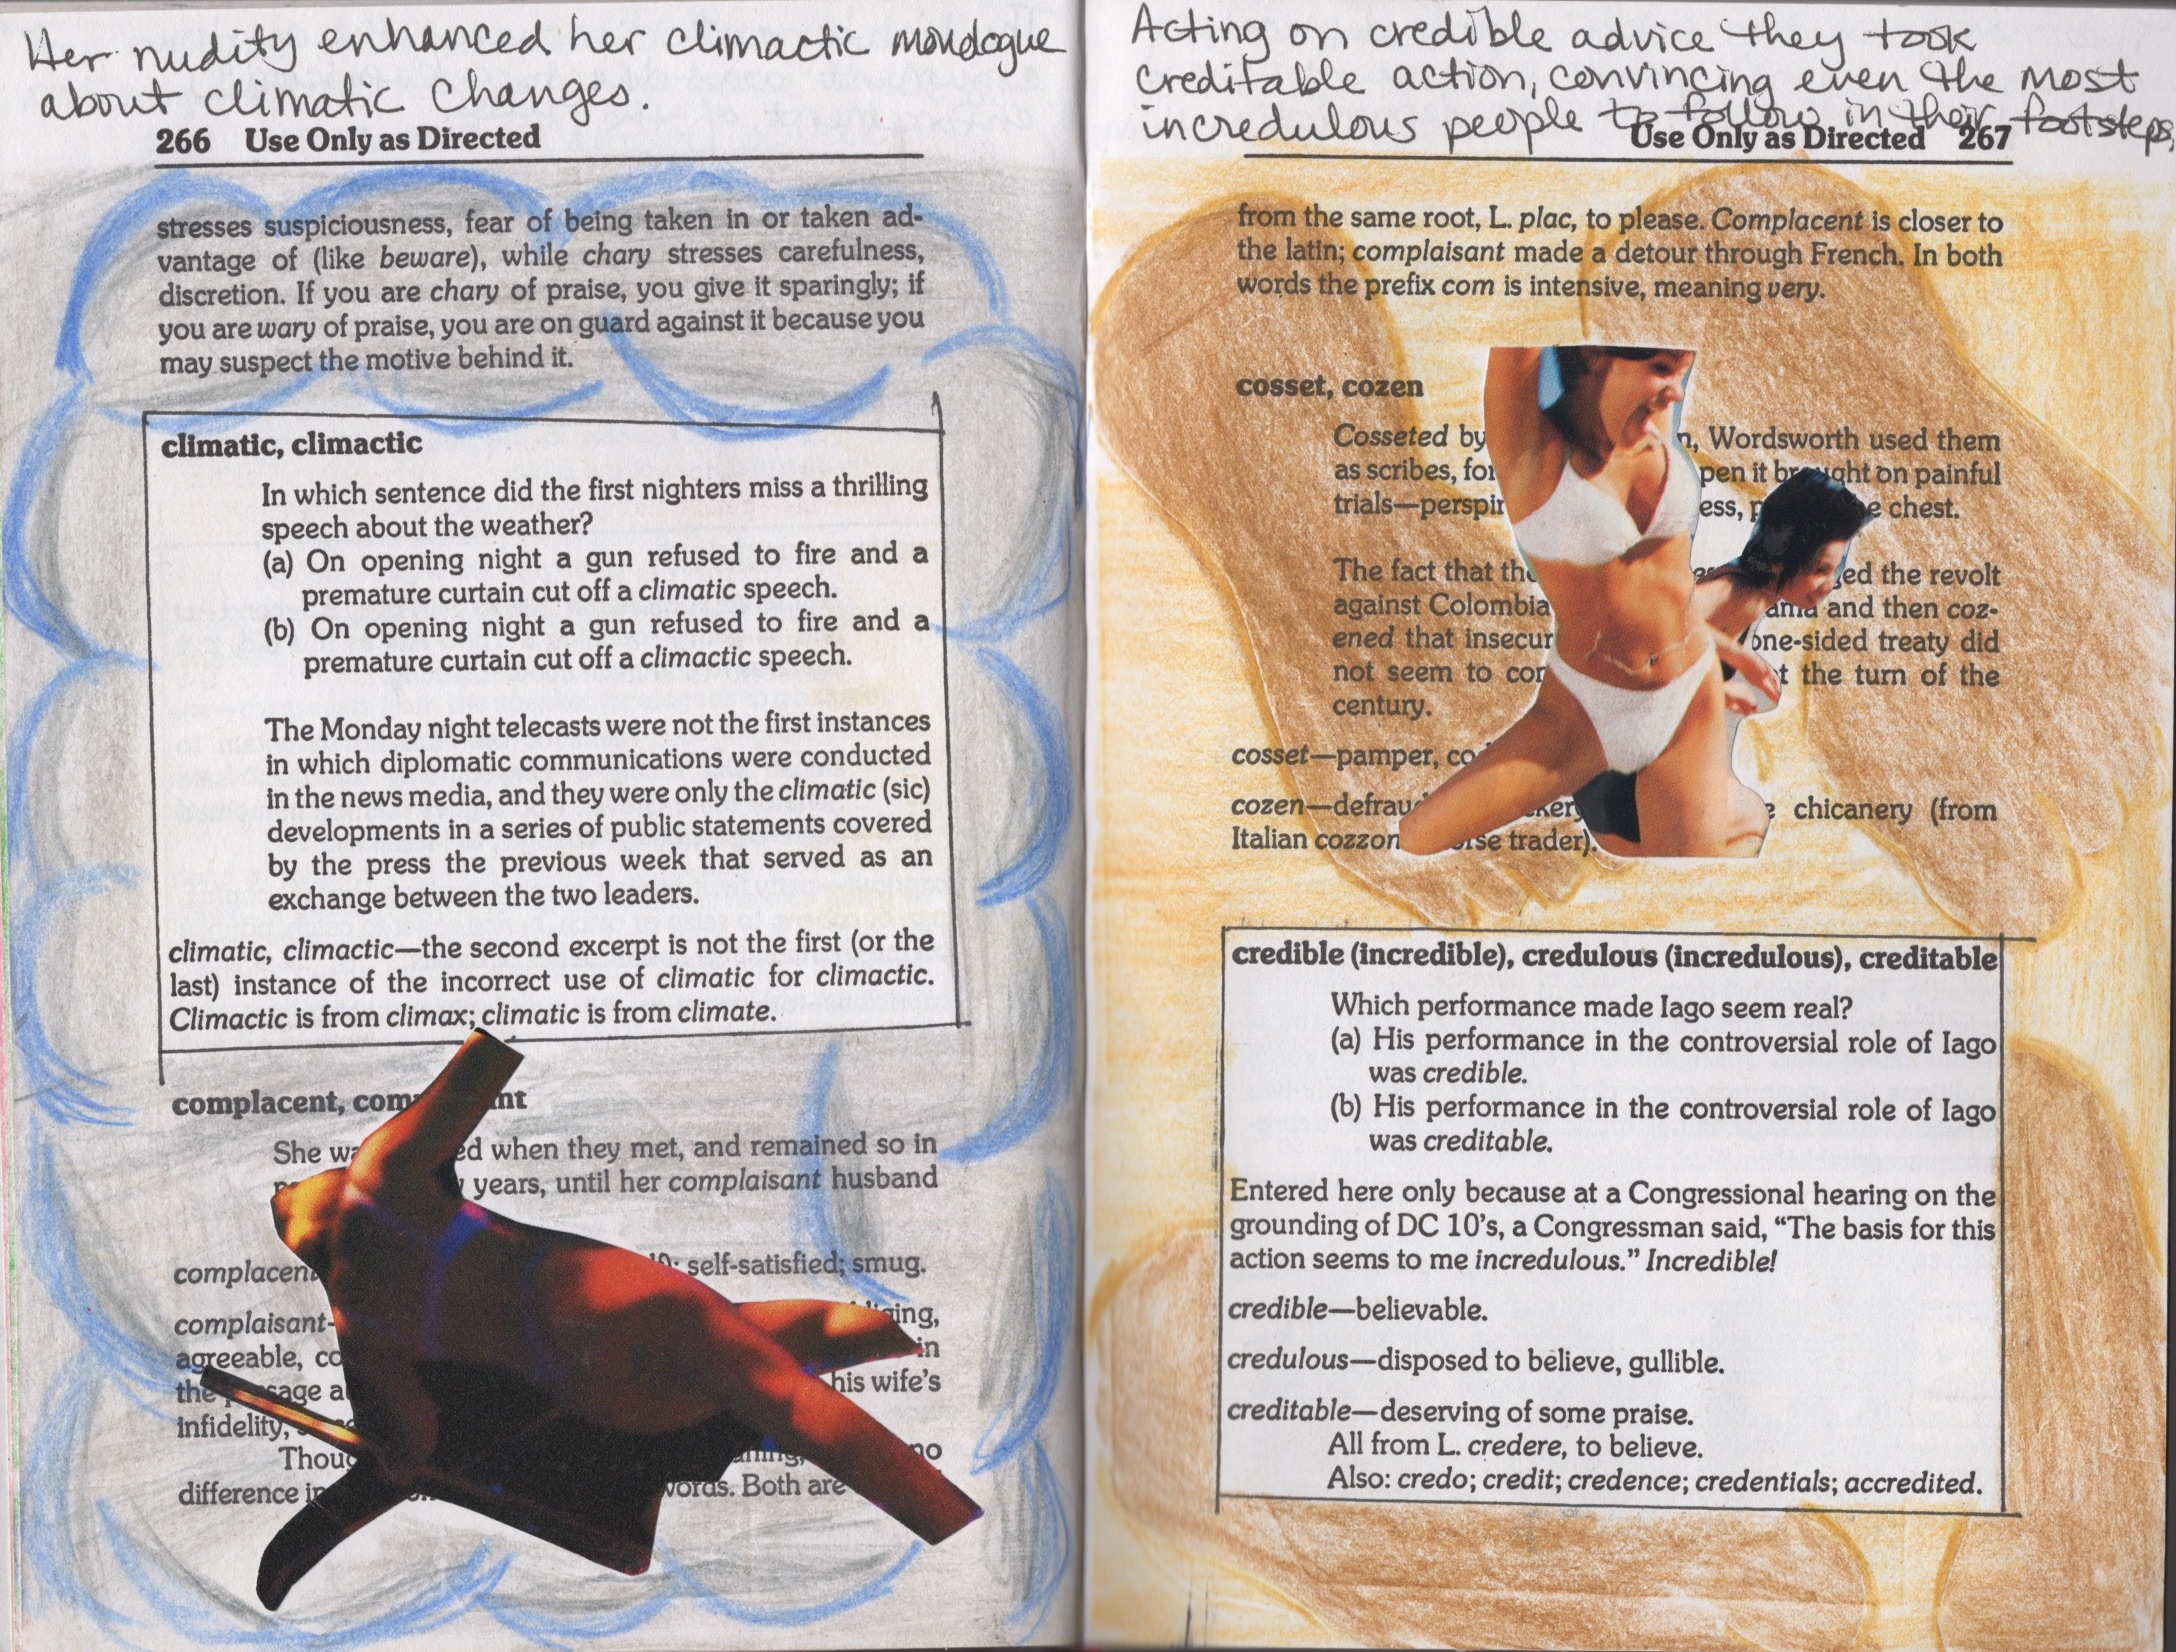 Her nudity enhanced her climactic monologue
about climatic changes.
266 Use Only as Directed
stresses suspiciousness, fear of being taken in or taken ad-
vantage of (like beware), while chary stresses carefulness,
discretion. If you are chary of praise, you give it sparingly; if
you are wary of praise, you are on guard against it because you
may suspect the motive behind it.
climatic, climactic
In which sentence did the first nighters miss a thrilling
speech about the weather?
(a) On opening night a gun refused to fire and a
premature curtain cut off a climatic speech.
(b) On opening night a gun refused to fire and a
premature curtain cut off a climactic speech.
The Monday night telecasts were not the first instances
in which diplomatic communications were conducted
in the news media, and they were only the climatic (sic)
developments in a series of public statements covered
by the press the previous week that served as an
exchange between the two leaders.
climatic, climactic—the second excerpt is not the first (or the
last) instance of the incorrect use of climatic for climactic.
Climactic is from climax; climatic is from climate.
complacent,
She when they met, and remained so in
years, until her complaisant husband
complacent self-satisfied; smug.
complaisant-
agreeable, in
the his wife's
infidelity,
no
difference Both are
Acting on credible advice they took
creditable action, convincing even the most
incredulous people to follow in their footsteps.
Use Only as Directed 267
from the same root, L. plac, to please. Complacent is closer to
the latin; complaisant made a detour through French. In both
words the prefix com is intensive, meaning very.
cosset, cozen
Cosseted by Wordsworth used them
as scribes, pen it brought on painful
trials— chest.
The fact that the revolt
against Colombia and then coz-
ened that one-sided treaty did
not seem to the turn of the
century.
cosset—pamper,
cozen— chicanery (from
Italian trader).
credible (incredible), credulous (incredulous), creditable
Which performance made Iago seem real?
(a) His performance in the controversial role of Iago
was credible.
(b) His performance in the controversial role of Iago
was creditable.
Entered here only because at a Congressional hearing on the
grounding of DC 10's, a Congressman said, “The basis for this
action seems to me incredulous.” Incredible!
credible—believable.
credulous—disposed to believe, gullible.
creditable—deserving of some praise.
All from L. credere, to believe.
Also: credo; credit; credence; credentials; accredited.